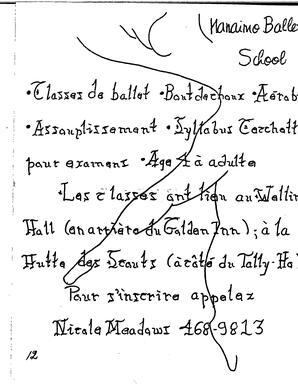 Nanaimo Balle
School
•Classes de ballet •Bout de choux •Aérob
•Assouplissement •Syllabus Cecchett
pour examens •Age 4 à adulte
Les classes ont lieu au Wellin
Hall (en arrière du Golden Inn); à la
Hutte des Scouts (à côté du Tally-Ho
Pour s'inscrire appelez
Nicole Meadows 468-9813
12